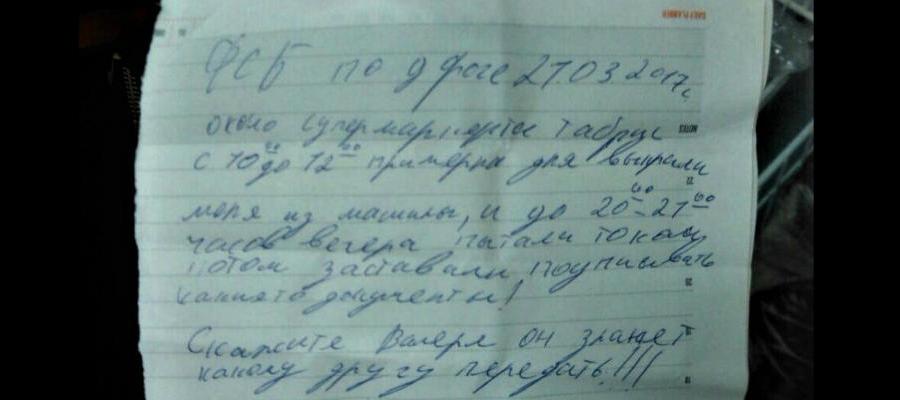 DAILY PLANNER
ФСБ по дроге 27.03 2017г
NOTES
около супермаркета Табрис
с 10 00 до 12 00 примерна дня выкрали
меня из машины, и до 20 00-21 00
часов вечера пытали током
потом заставили подписывать
какието документы!
Скажите Валере он знает
какому другу передать!!!!